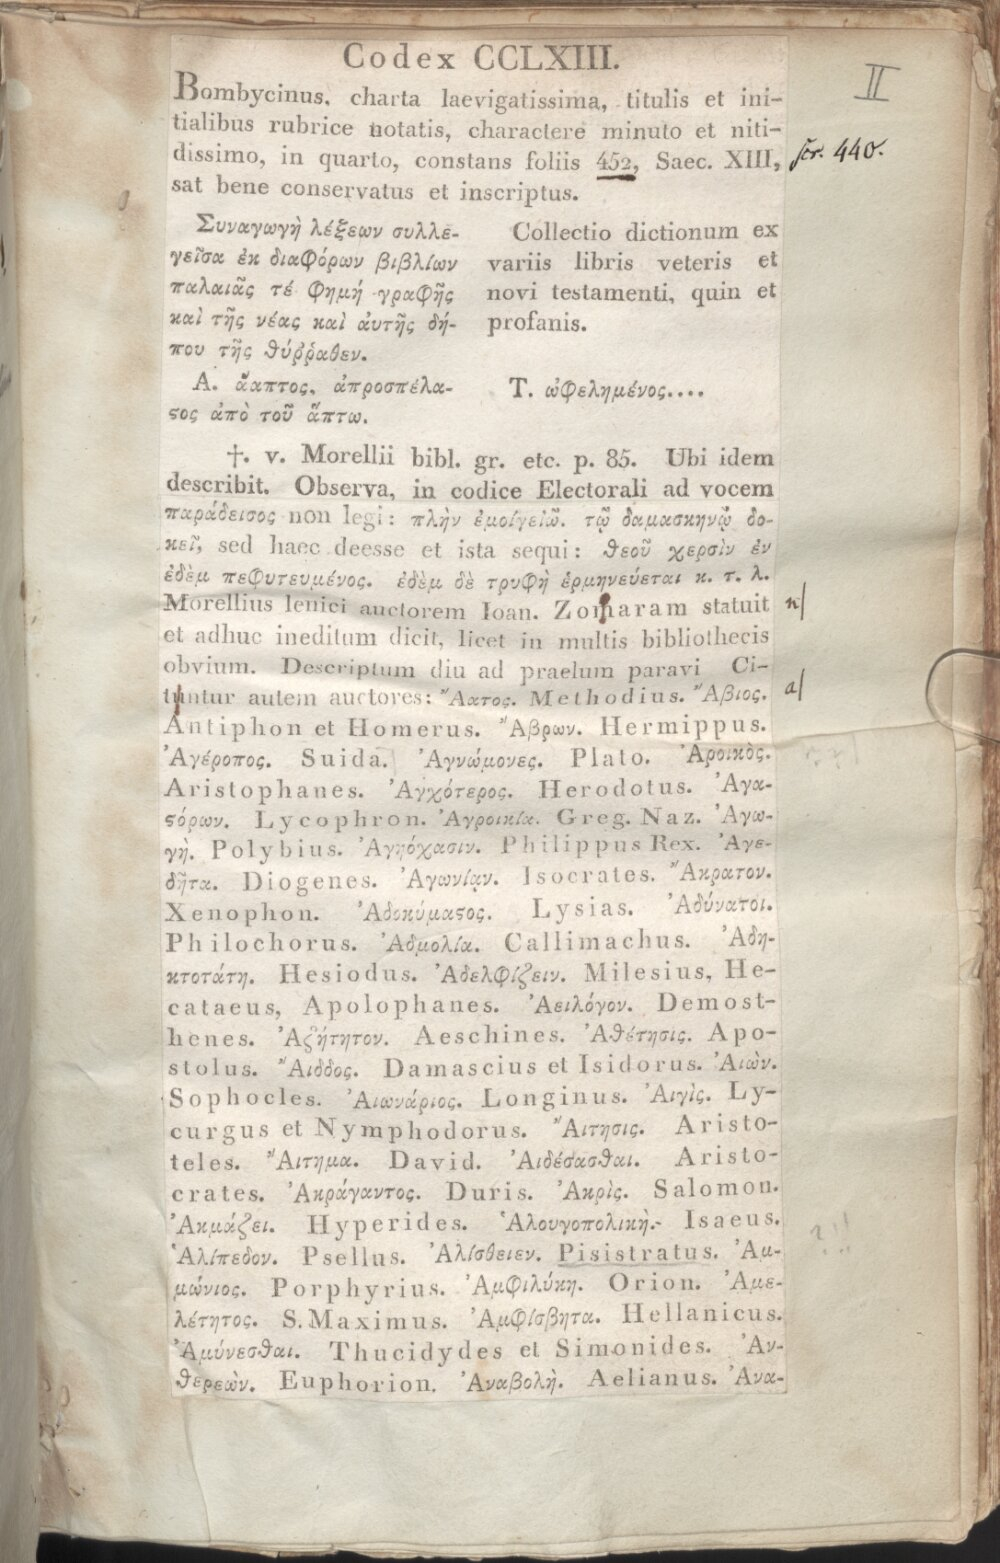 Codex CCLXIII.
II
Bombycinus, charta laevigatissima, titulis et ini-
tialibus rubrice notatis, charactere minuto et niti-
dissimo, in quarto, constans foliis 452, Saec. XIII,
scr. 440.
sat bene conservatus et inscriptus.
Συναγωγὴ λέξεων συλλε-
γεῖσα ἐκ διαφόρων βιβλίων
παλαιᾶς τέ φημή γραφῆς
καὶ τῆς νέας καὶ ἀυτῆς δή-
που τῆς θύῤῥαθεν.
Collectio dictionum ex
variis libris veteris et
novi testamenti, quin et
profanis.
Α. ἄαπτος, ἀπροσπέλα-
ϛος ἀπὸ τοῦ ἅπτω.
Τ. ὠφελημένος....
†. v. Morellii bibl. gr. etc. p. 85. Ubi idem
describit. Observa, in codice Electorali ad vocem
παράδεισος non legi: πλὴν ἐμοίγειῶ. τῷ δαμασκηνῷ δο-
κεῖ, sed haec deesse et ista sequi: θεοῦ χερσὶν ἐν
ἐδὲμ πεφυτευμένος. ἐδὲμ δὲ τρυφὴ ἑρμηνεύεται κ. τ. λ.
Morellius lenici auctorem Ioan. Zomaram statuit n/
et adhuc ineditum dicit, licet in multis bibliothecis
obvium. Descriptum diu ad praelum paravi Ci-
tuntur autem auctores: Ἄατος. Methodius. Ἄβιος. a/
Antiphon et Homerus. Ἄβρων. Hermippus.
Ἀγέροπος. Suida. Ἀγνώμονες. Plato. Ἀροικὸς.
Aristophanes. Ἀγχότερος. Herodotus. Ἀγα-
ϛόρων. Lycophron. Ἀγροικία. Greg. Naz. Ἀγω-
γὴ. Polybius. Ἀγηόχασιν. Philippus Rex. Ἀγε-
δῆτα. Diogenes. Ἀγωνίᾳν. Isocrates. Ἄκρατον.
Xenophon. Ἀδοκύμαϛος. Lysias. Ἀδύνατοι.
Philochorus. Ἀδμολία. Callimachus. Ἀδη-
κτοτάτη. Hesiodus. Ἀδελφίζειν. Milesius, He-
cataeus, Apolophanes. Ἀειλόγον. Demost-
henes. Ἀζήτητον. Aeschines. Ἀθέτησις. Apo-
stolus. Ἄιδδος. Damascius et Isidorus. Ἀιὼν.
Sophocles. Ἀιωνάριος. Longinus. Ἀιγὶς. Ly-
curgus et Nymphodorus. Ἄιτησις. Aristo-
teles. Ἄιτημα. David. Ἀιδέσασθαι. Aristo-
crates. Ἀκράγαντος. Duris. Ἀκρὶς. Salomon.
Ἀκμάζει. Hyperides. Ἁλουγοπολικὴ. Isaeus.
Ἁλίπεδον. Psellus. Ἀλίσθειεν. Pisistratus. Ἀμ-
μώνιος. Porphyrius. Ἀμφιλύκη. Orion. Ἀμε-
λέτητος. S. Maximus. Ἀμφίσβητα. Hellanicus.
Ἀμύνεσθαι. Thucidydes et Simonides. Ἀν-
θερεὼν. Euphorion. Ἀναβολὴ. Aelianus. Ἀνα-